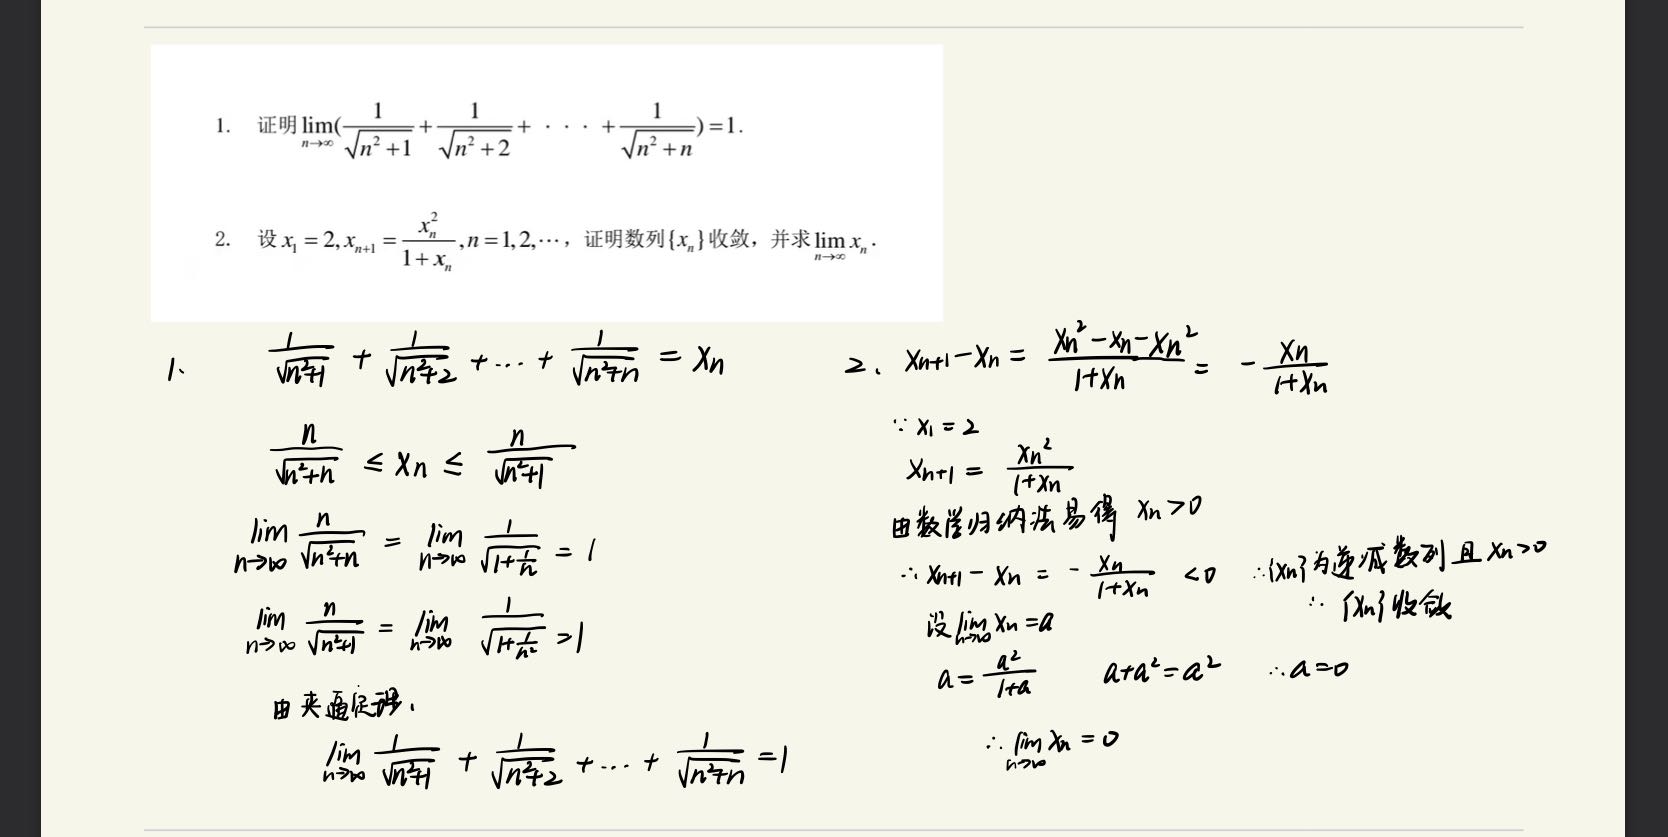 1. 证明 lim_{n→∞}(1/√(n²+1) + 1/√(n²+2) + · · · + 1/√(n²+n)) = 1.
2. 设 x₁ = 2, x_{n+1} = x_n²/(1+x_n), n = 1, 2, ⋯, 证明数列{x_n}收敛，并求 lim_{n→∞} x_n.
1、 1/√(n²+1) + 1/√(n²+2) + … + 1/√(n²+n) = x_n
n/√(n²+n) ≤ x_n ≤ n/√(n²+1)
lim_{n→∞} n/√(n²+n) = lim_{n→∞} 1/√(1+1/n) = 1
lim_{n→∞} n/√(n²+1) = lim_{n→∞} 1/√(1+1/n²) = 1
由夹逼定理、
lim_{n→∞} 1/√(n²+1) + 1/√(n²+2) + … + 1/√(n²+n) = 1
2、 x_{n+1} - x_n = (x_n² - x_n - x_n²)/(1+x_n) = - x_n/(1+x_n)
∵ x₁ = 2
x_{n+1} = x_n²/(1+x_n)
由数学归纳法易得 x_n > 0
∴ x_{n+1} - x_n = - x_n/(1+x_n) < 0 ∴{x_n}为递减数列且 x_n > 0
∴ {x_n}收敛
设 lim_{n→∞} x_n = a
a = a²/(1+a) a + a² = a² ∴ a = 0
∴ lim_{n→∞} x_n = 0